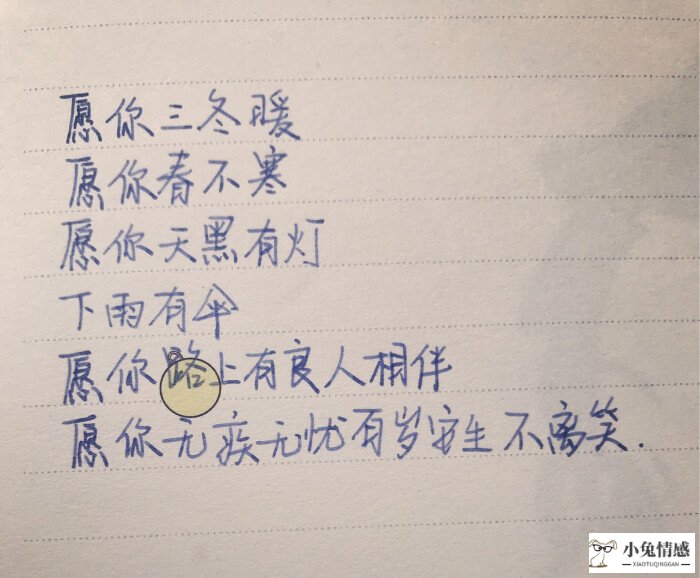 愿你三冬暖
愿你春不寒
愿你天黑有灯
下雨有伞
愿你路上有良人相伴
愿你无疾无忧百岁安生不离笑.
小兔情感
XIAOTUQINGGAN